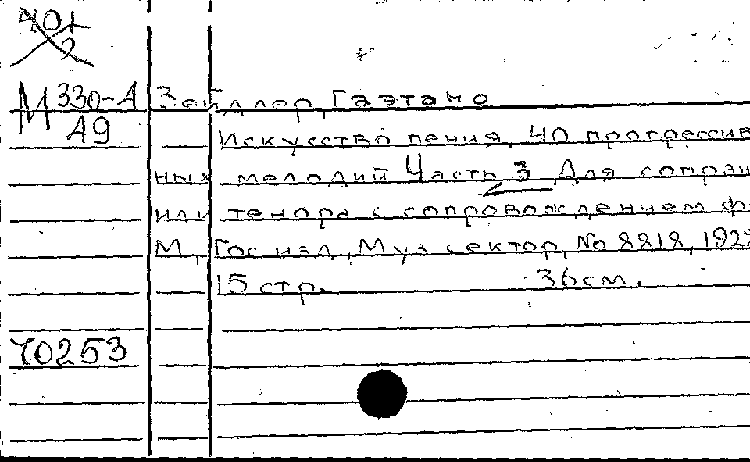 401
2
М 330-А Зейдлер, Гаэтано
А9 Искусство пения, 40 прогрессив
ных мелодий Часть 3 Для сопран
или тенора с сопровождением ф
М., Гос изд, Муз сектор, No 8818, 192
15 стр. 36 см.
70253